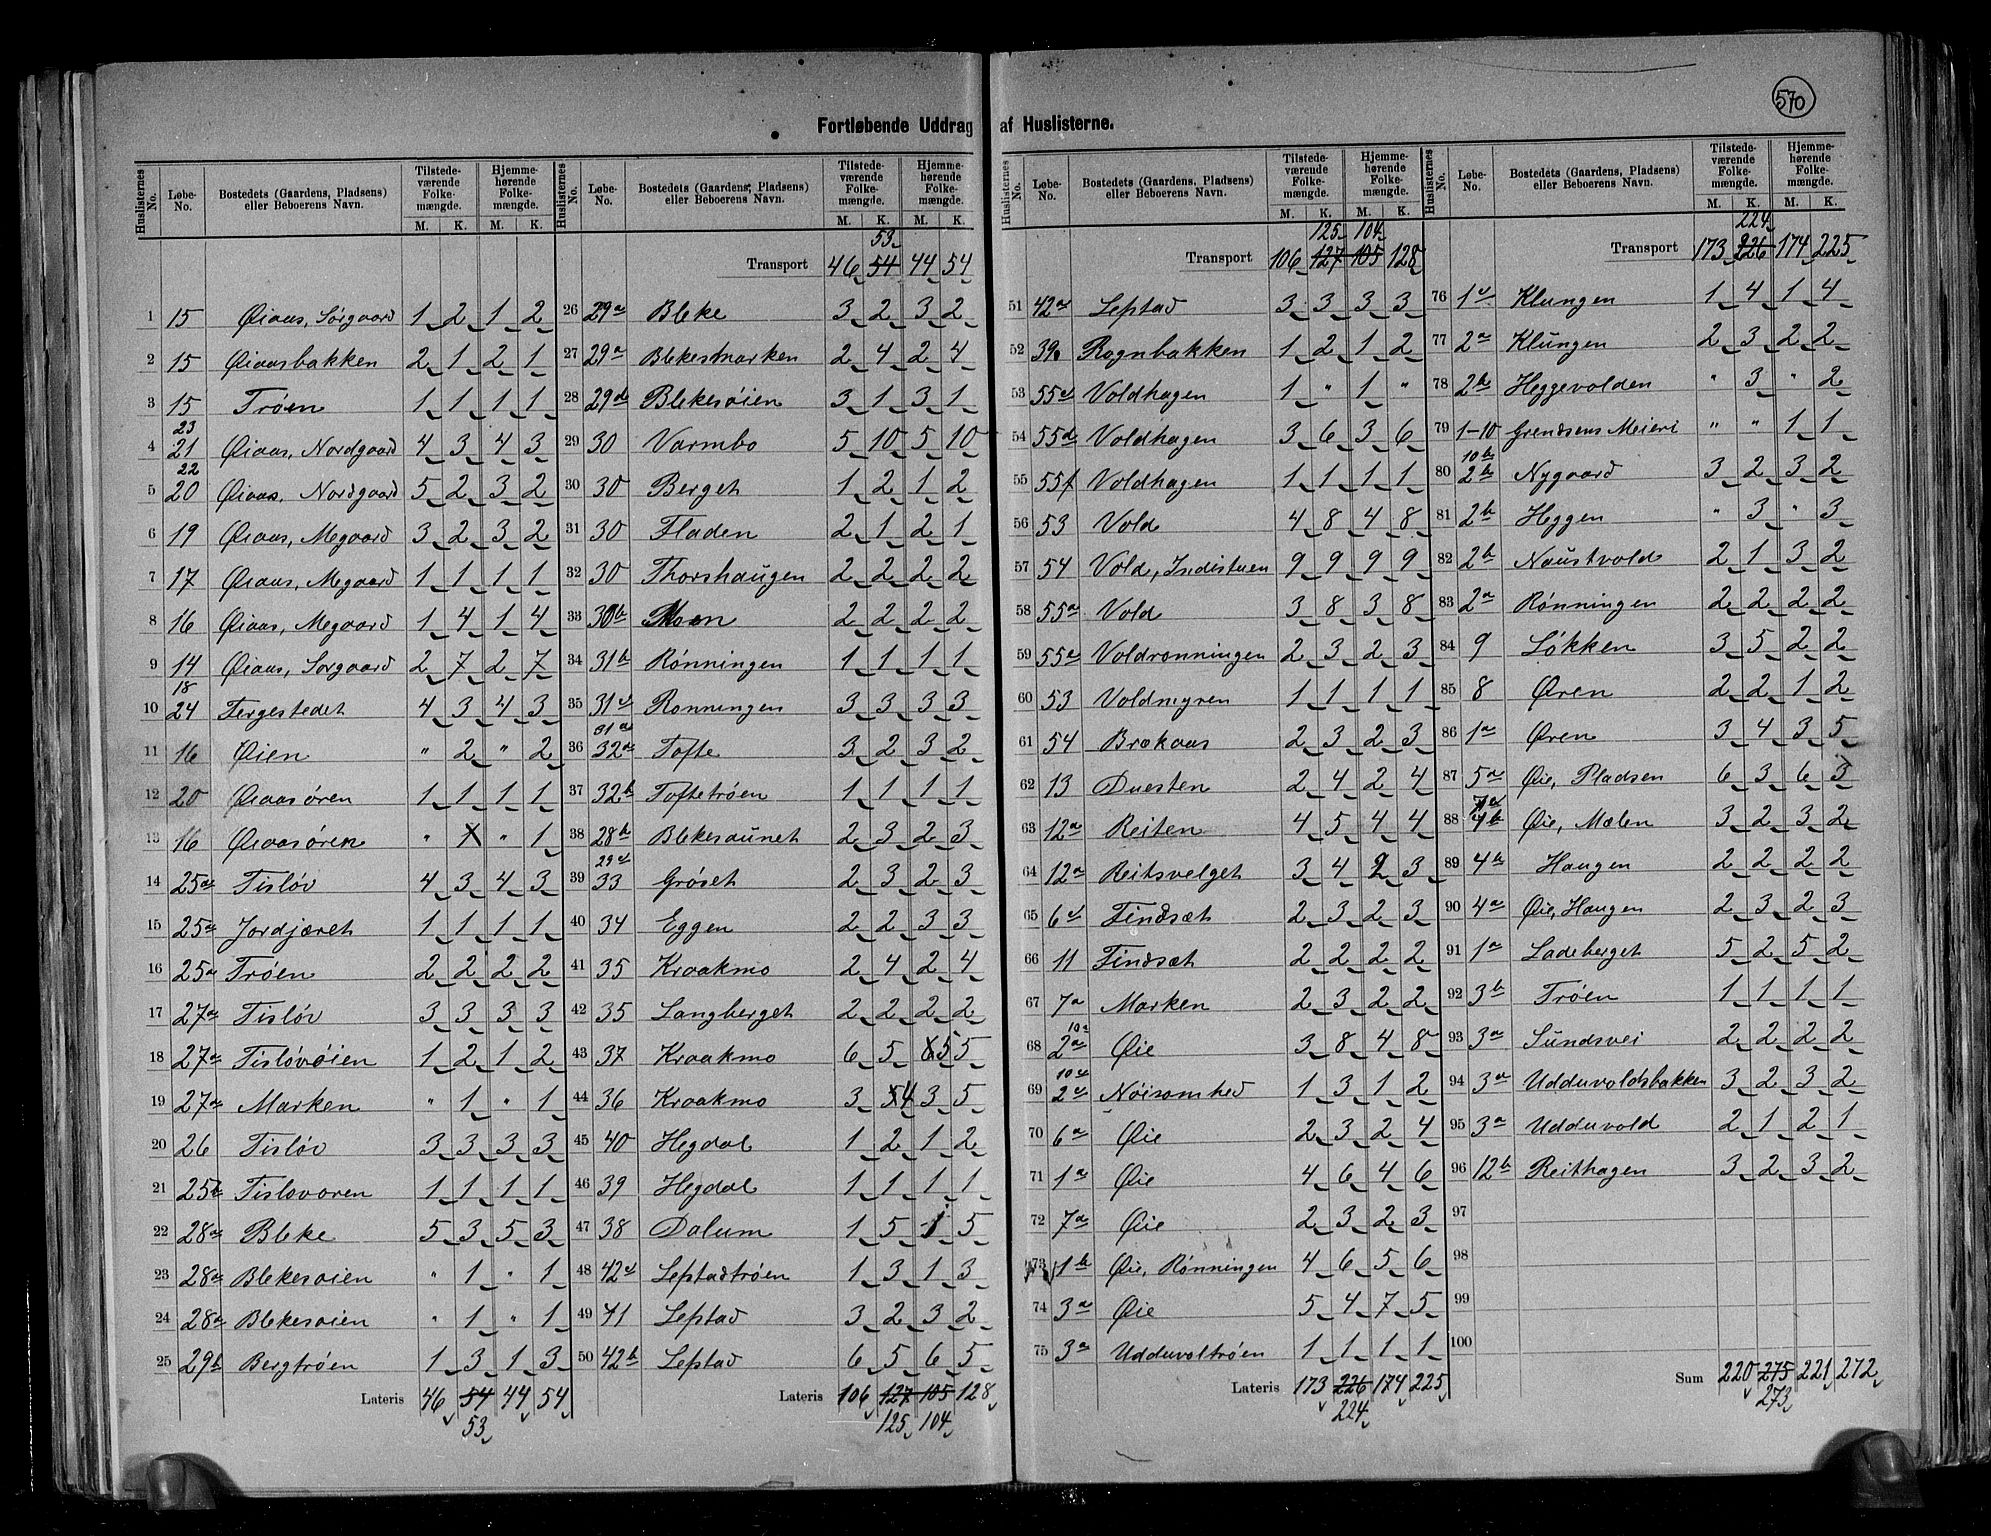 570
Fortløbende Uddrag af Huslisterne.
Huslisternes No. Løbe-No. Bostedets (Gaardens, Pladsens) eller Beboerens Navn. Tilstedeværende Folkemængde. M. K. Hjemmehørende Folkemængde. M. K.
1 15 Øiaas, Sørgaard 1 2 1 2
2 15 Øiaasbakken 2 1 2 1
3 15 Trøen 1 1 1 1
4 23 21 Øiaas, Nordgaard 4 3 4 3
5 22 20 Øiaas, Nordgaard 5 2 3 2
6 19 Øiaas, Megaard 3 2 3 2
7 17 Øiaas, Megaard 1 1 1 1
8 16 Øiaas, Megaard 1 4 1 4
9 14 Øiaas, Sørgaard 2 7 2 7
10 18 24 Fergestedet 4 3 4 3
11 16 Øien " 2 " 2
12 20 Øiaasøren 1 1 1 1
13 16 Øiaasøren " " 1
14 25a Tisløv 4 3 4 3
15 25a Jordjæret 1 1 1 1
16 25a Trøen 2 2 2 2
17 27a Tisløv 3 3 3 3
18 27a Tisløvøien 1 2 1 2
19 27a Marken " 1 " 1
20 26 Tisløv 3 3 3 3
21 25b Tisløvøren 1 1 1 1
22 28a Bleke 5 3 5 3
23 28a Blekesøien " 1 " 1
24 28a Blekesøien " 1 " 1
25 29b Bergtrøen 1 3 1 3
Lateris 46 54 44 54
53
Huslisternes No. Løbe-No. Bostedets (Gaardens, Pladsens) eller Beboerens Navn. Tilstedeværende Folkemængde. M. K. Hjemmehørende Folkemængde. M. K.
53
Transport 46 54 44 54
26 29a Bleke 3 2 3 2
27 29a Blekesmarken 2 4 2 4
28 29d Blekesøien 3 1 3 1
29 30 Varmbo 5 10 5 10
30 30 Berget 1 2 1 2
31 30 Fladen 2 1 2 1
32 30 Thorshaugen 2 2 2 2
33 30b Moen 2 2 2 2
34 31b Rønningen 1 1 1 1
35 31c Rønningen 3 3 3 3
36 31a 32a Tofte 3 2 3 2
37 32b Toftetrøen 1 1 1 1
38 28b Blekesaunet 2 3 2 3
39 29c 33 Grøset 2 3 2 3
40 34 Eggen 2 2 3 3
41 35 Kraakmo 2 4 2 4
42 35 Langberget 2 2 2 2
43 37 Kraakmo 6 5 6 5 5
44 36 Kraakmo 3 5 4 3 5
45 40 Hegdal 1 2 1 2
46 39 Hegdal 1 1 1 1
47 38 Dalum 1 5 1 5
48 42c Leptadtrøen 1 3 1 3
49 41 Leptad 3 2 3 2
50 42b Leptad 6 5 6 5
Lateris 106 127 105 128
125 104
Huslisternes No. Løbe-No. Bostedets (Gaardens, Pladsens) eller Beboerens Navn. Tilstedeværende Folkemængde. M. K. Hjemmehørende Folkemængde. M. K.
125 104
Transport 106 127 105 128
51 42a Leptad 3 3 3 3
52 39 Rognbakken 1 2 1 2
53 55c Voldhagen 1 " 1 "
54 55d Voldhagen 3 6 3 6
55 55f Voldhagen 1 1 1 1
56 53 Vold 4 8 4 8
57 54 Vold, Indistuen 9 9 9 9
58 55a Vold 3 8 3 8
59 55e Voldrønningen 2 3 2 3
60 53 Voldmyren 1 1 1 1
61 54 Brækaas 2 3 2 3
62 13 Duesten 2 4 2 4
63 12a Reiten 4 5 4 4
64 12a Reitsvelget 3 4 2 3
65 6c Findsæt 2 3 2 3
66 11 Findsæt 2 2 2 2
67 7a Marken 2 3 2 2
68 10a 2a Øie 3 8 4 8
69 10c 2c Nøisomhed 1 3 1 2
70 6a Øie 2 3 2 4
71 1a Øie 4 6 4 6
72 7a Øie 2 3 2 3
73 1b Øie, Rønningen 4 6 5 6
74 3a Øie 5 4 7 5
75 3a Udduvoltrøen 1 1 1 1
Lateris 173 226 174 225
224
Huslisternes No. Løbe-No. Bostedets (Gaardens, Pladsens) eller Beboerens Navn. Tilstedeværende Folkemængde. M. K. Hjemmehørende Folkemængde. M. K.
224
Transport 173 226 174 225
76 1c Klungen 1 4 1 4
77 2a Klungen 2 3 2 2
78 2b Heggevolden " 3 " 2
79 1-10 Grendsens Meieri " " 1 1
80 10b 2b Nygaard 3 2 3 2
81 2b Heggen " 3 " 3
82 2b Naustvold 2 1 3 2
83 2a Rønningen 2 2 2 2
84 9 Løkken 3 5 2 2
85 8 Øren 2 2 1 2
86 1a Øren 3 4 3 5
87 5a Øie, Pladsen 6 3 6 3
88 4b Øie, Mælen 3 2 3 2
89 4b Haugen 2 2 2 2
90 4a Øie, Haugen 2 3 2 3
91 1a Ladeberget 5 2 5 2
92 3b Trøen 1 1 1 1
93 3a Sundsvei 2 2 2 2
94 3a Udduvoldsbakken 3 2 3 2
95 3a Udduvold 2 1 2 1
96 12b Reithagen 3 2 3 2
97
98
99
100
Sum 220 275 221 272
273